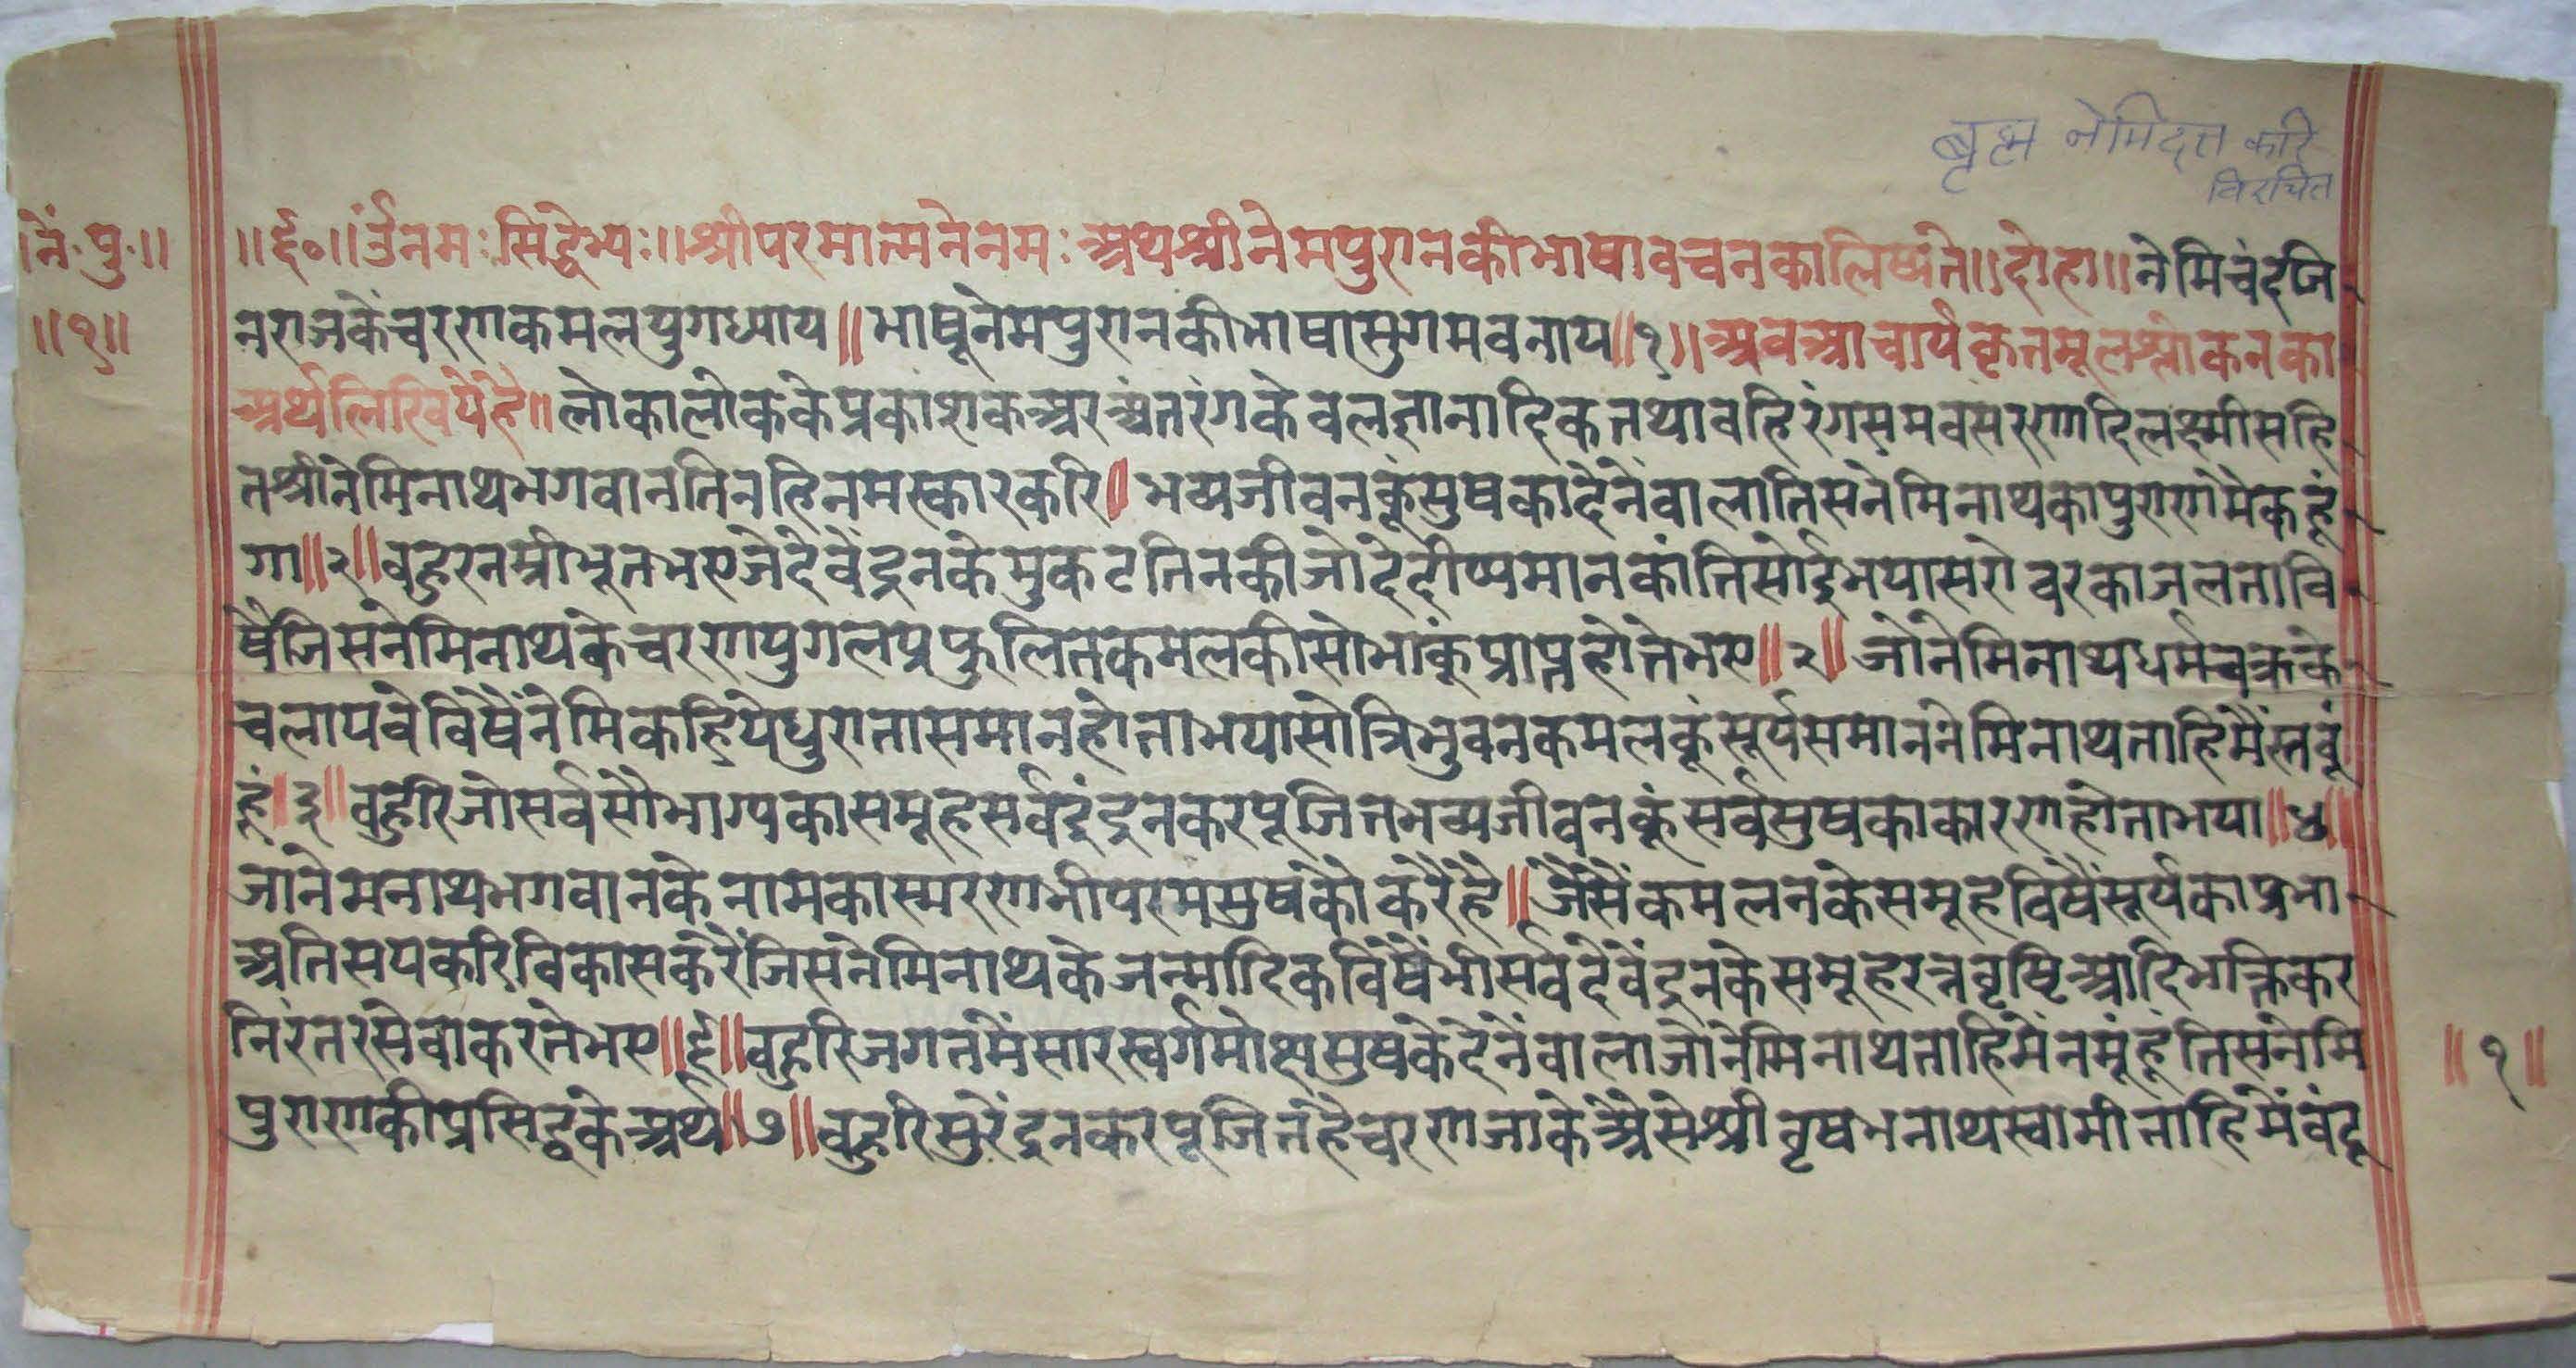 बृह्म नेमिदत्त करि
विरचित
।नें.पु.॥
॥१॥
॥र्द०॥ॐनमःसिद्धेभ्यः॥श्रीपरमात्मनेनमःअथश्रीनेमपुरानकीभाषावचनकालिष्यते॥दोहा॥नेमिचंदजि
नराजकेंचरणकमलयुगध्याय॥भाषूनेमपुरानकीभाषासुगमवनाय॥१॥अवआचार्यकृतमूलश्लोकनका
अर्थलिखियेहै॥लोकालोककेप्रकाशकअरअंतरंगकेवलज्ञानादिकतथावहिरंगसमवसरणादिलक्ष्मीसहि
तश्रीनेमिनाथभगवानतिनहिनमस्कारकरि॥भव्यजीवनकूंसुषकादेनेंवालातिसनेमिनाथकापुराणमैकहूं
गा॥२॥वहुरनम्रीभूतभएजेदेवेंद्रनकेमुकटतिनकीजोदेदीप्यमानकांतिसोईभयासरोवरकाजलतावि
षैजिसनेमिनाथकेचरणयुगलप्रफुलितकमलकीसोभाकूंप्राप्तहोतेभए॥२॥जोनेमिनाथधर्मचक्रके
चलायवेविषैंनेमिकहियेधुरातासमानहोताभयासोत्रिभुवनकमलकूंसूर्यसमाननेमिनाथताहिमैंस्तवूं
हूं॥३॥वहुरिजोसर्वसौभाग्यकासमूहसर्वइंद्रनकरपूजितभव्यजीवनकूंसर्वसुषकाकारणहोताभया॥४॥
जोनेमनाथभगवानकेनामकास्मरणभीपरमसुषकोंकरैहै॥जैसैंकमलनकेसमूहविषैंसूर्यकाप्रभा
अतिसयकरिविकासकरैंजिसनेमिनाथकेजन्मादिकविषैंभीसर्वदेवेंद्रनकेसमूहरत्नवृष्टिआदिभक्तिकर
निरंतरसेवाकरतेभए॥६॥वहुरिजगतमेंसारस्वर्गमोक्षसुषकेदेनेंवालाजोनेमिनाथताहिमेंनमूंहूंतिसनेमि
पुराणकीप्रसिद्धकेअर्थ॥७॥वहुरिसुरेंद्रनकरपूजितहैचरणजाकेअैसेश्रीवृषभनाथस्वामीताहिमेंवंदू
॥१॥